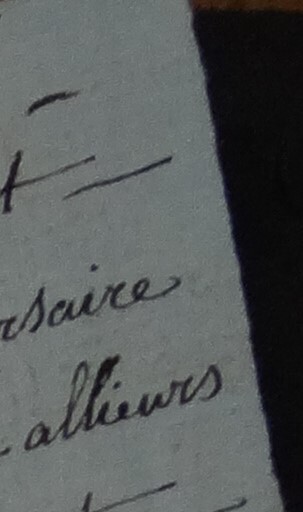 rsaire
allieurs